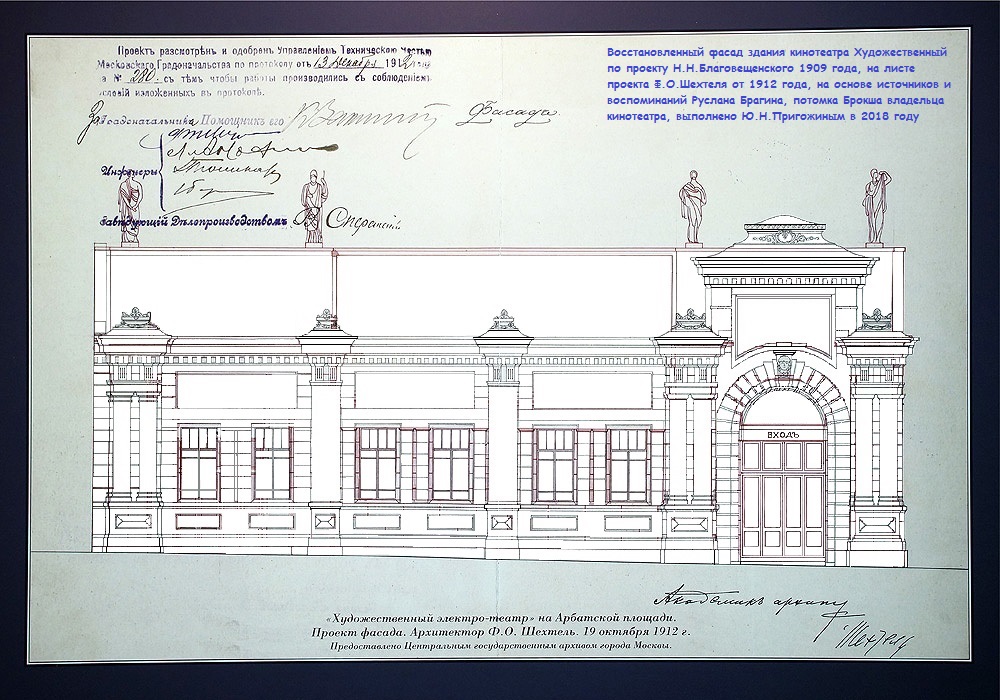 Проектъ разсмотрѣнъ и одобренъ Управленіемъ Техническою частью
Московскаго Градоначальства по протоколу отъ 13 Декабря 1912 года
а № 280. съ тѣмъ чтобы работы производились съ соблюденіемъ
условій изложенныхъ въ протоколѣ.
За Градоначальника Помощникъ его
Фасадъ.
Инженеры
Завѣдующій Дѣлопроизводствомъ
Восстановленный фасад здания кинотеатра Художественный
по проекту Н.Н.Благовещенского 1909 года, на листе
проекта Ф.О.Шехтеля от 1912 года, на основе источников и
воспоминаний Руслана Брагина, потомка Брокша владельца
кинотеатра, выполнено Ю.Н.Пригожиным в 2018 году
ВХОДЪ
Академикъ архит
Шехтель
«Художественный электро-театр» на Арбатской площади.
Проект фасада. Архитектор Ф.О. Шехтель. 19 октября 1912 г.
Предоставлено Центральным государственным архивом города Москвы.